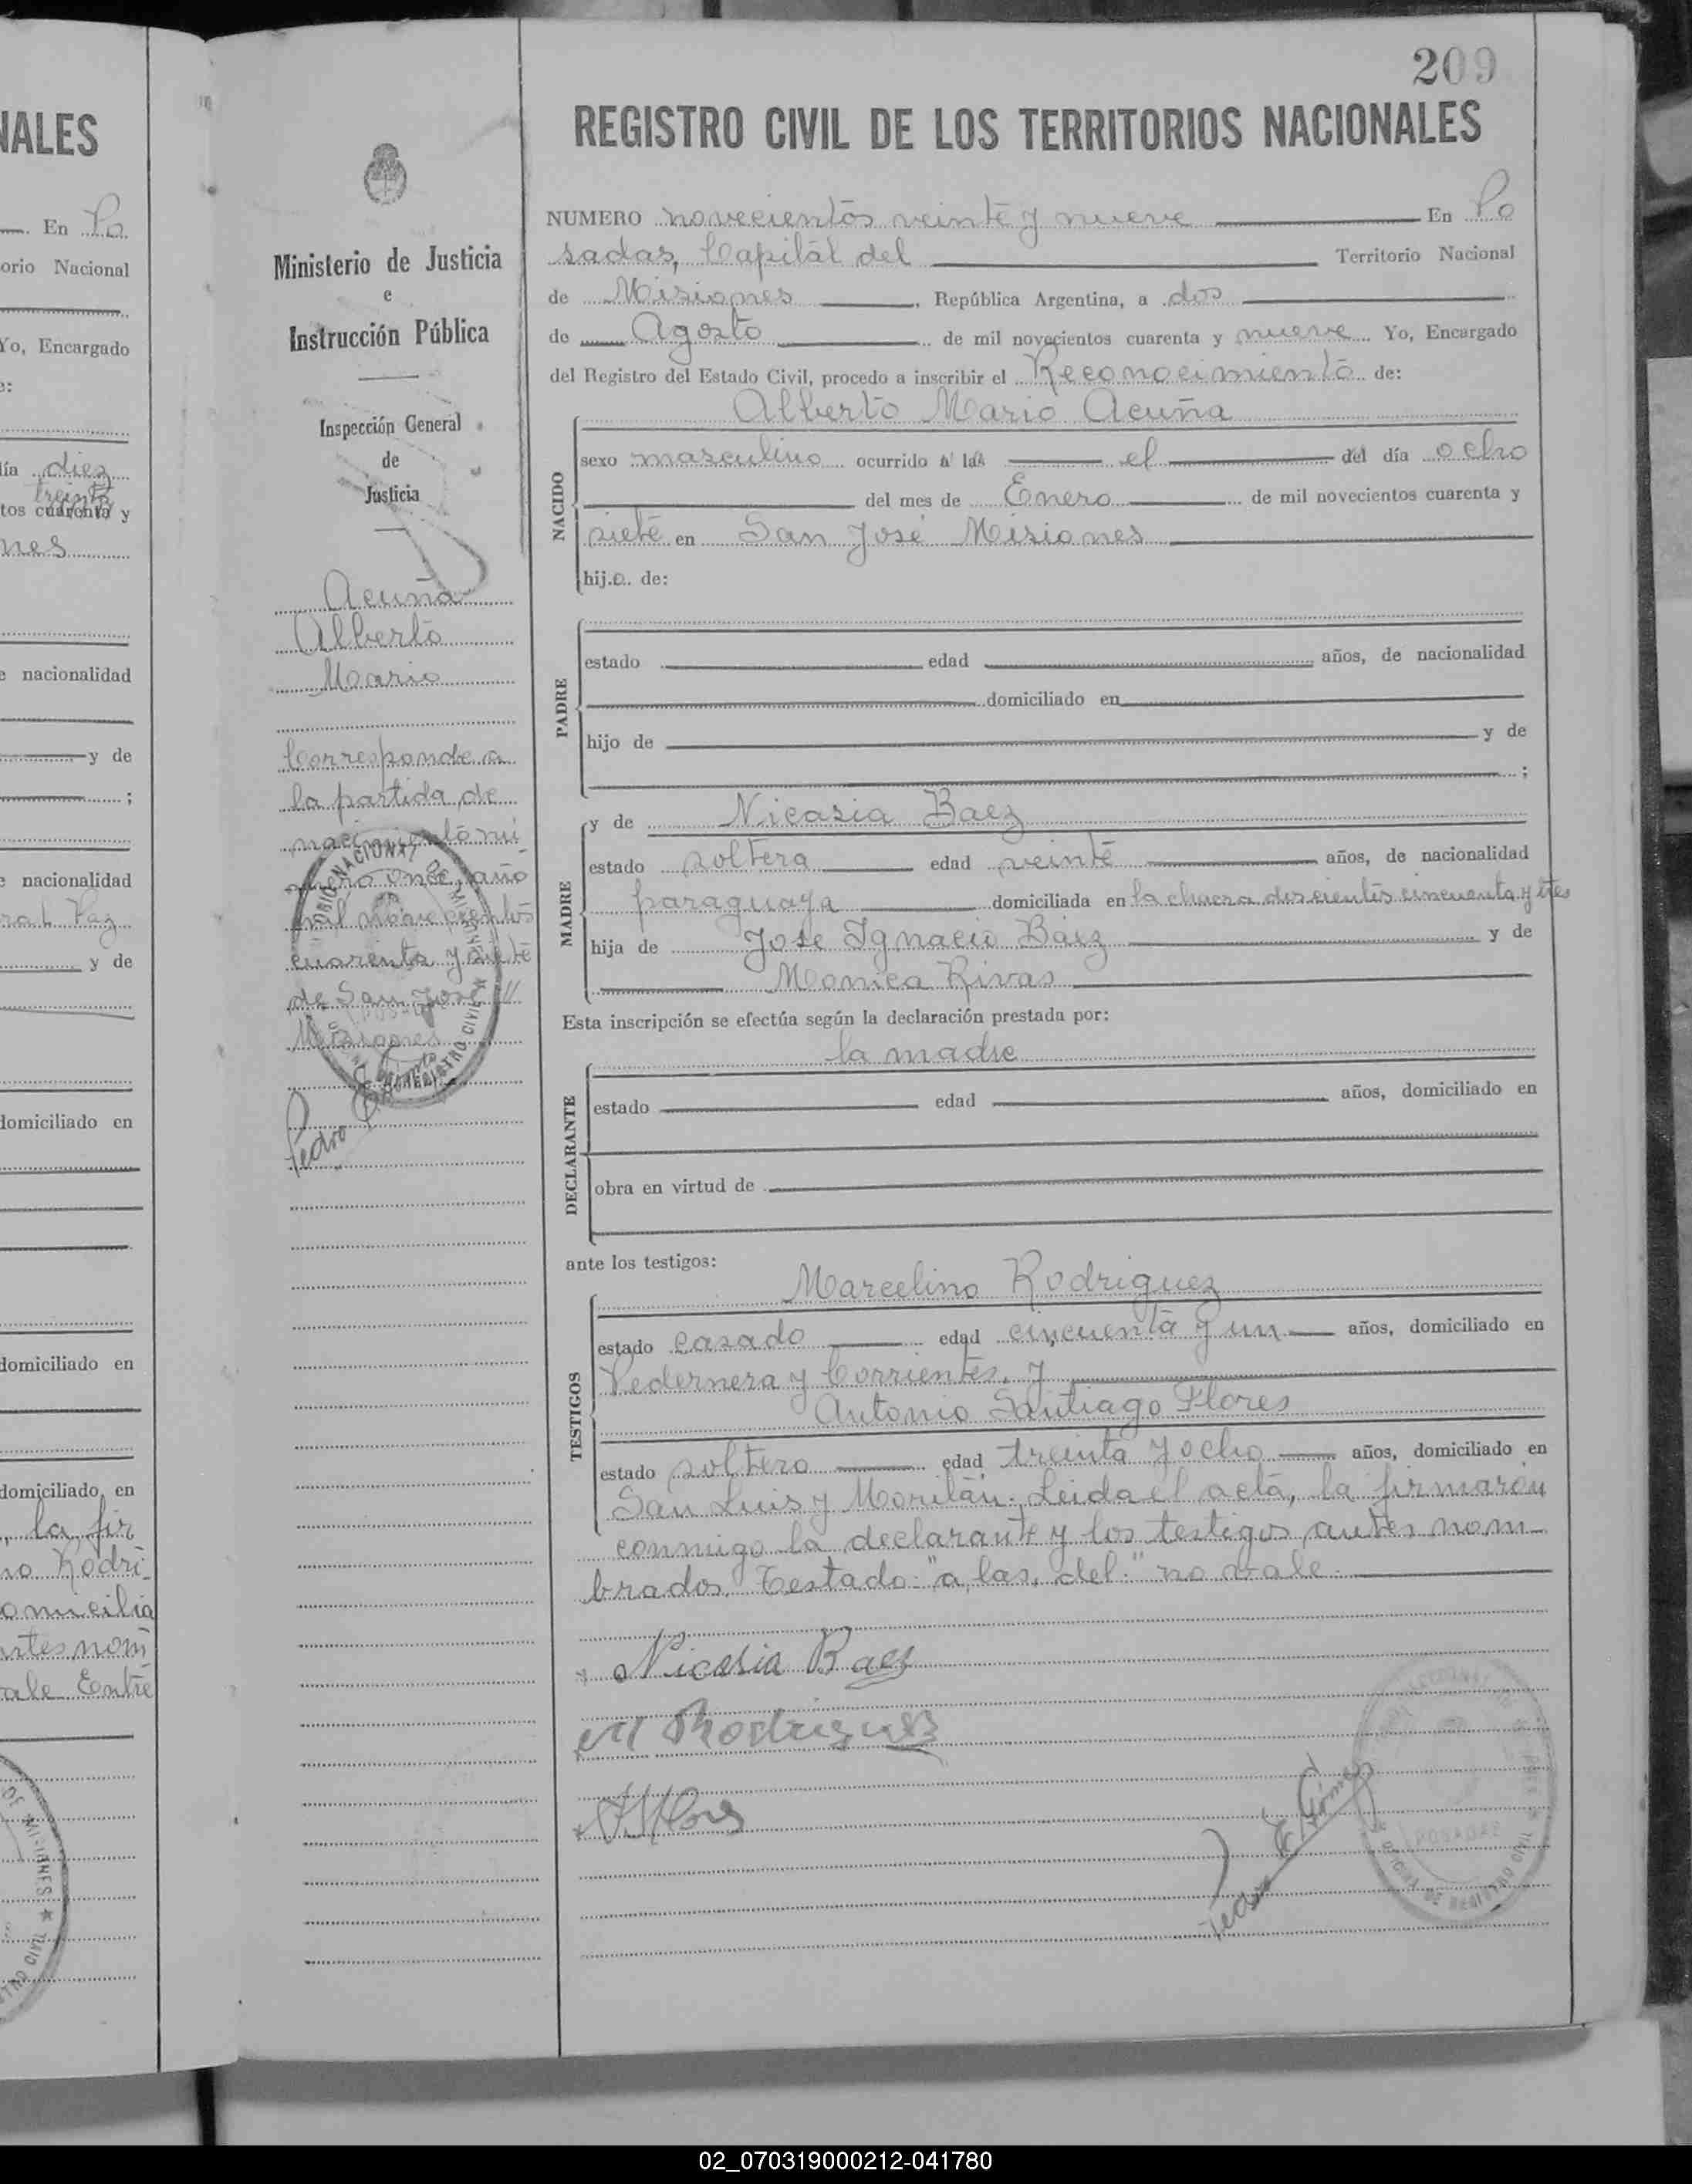 NALES
En Po
orio Nacional
Yo, Encargado
e:
día diez
treinta
tos cuarenta y
nes
e nacionalidad
y de
;
e nacionalidad
ral Paz
y de
domiciliado en
domiciliado en
domiciliado en
, la fir
no Rodri-
omicilia
ntes nom
ale Entre
DE MISIONES ★
Ministerio de Justicia
e
Instrucción Pública
Inspección General
de
Justicia
Acuña
Alberto
Mario
Corresponde a
la partida de
nacimiento nú
mero once, año
mil novecientos
cuarenta y siete
de San José //
Misiones
Pedro
209
REGISTRO CIVIL DE LOS TERRITORIOS NACIONALES
NUMERO novecientos veinte y nueve En Po
sadas, Capital del Territorio Nacional
de Misiones, República Argentina, a dos
de Agosto de mil novecientos cuarenta y nueve Yo, Encargado
del Registro del Estado Civil, procedo a inscribir el Reconocimiento de:
Alberto Mario Acuña
NACIDO
sexo masculino ocurrido a las el del día ocho
del mes de Enero de mil novecientos cuarenta y
siete en San José Misiones
hijo de:
PADRE
estado edad años, de nacionalidad
domiciliado en
hijo de y de
;
MADRE
y de Nicasia Baez
estado soltera edad veinte años, de nacionalidad
paraguaya domiciliada en la chacra doscientos cincuenta y tres
hija de Jose Ignacio Báez y de
Monica Rivas
Esta inscripción se efectúa según la declaración prestada por:
la madre
DECLARANTE
estado edad años, domiciliado en
obra en virtud de
ante los testigos:
Marcelino Rodriguez
TESTIGOS
estado casado edad cincuenta y un años, domiciliado en
Pedernera y Corrientes, y
Antonio Santiago Flores
estado soltero edad treinta y ocho años, domiciliado en
San Luis y Morilán. Leida el acta, la firmaron
conmigo la declarante y los testigos antes nom-
brados. Testado: "a, las, del." no vale.
Nicasia Baez
M Rodriguez
A S Flores
Pedro E Gómez
POSADAS
OFICINA DE REGISTRO CIVIL
02_070319000212-041780